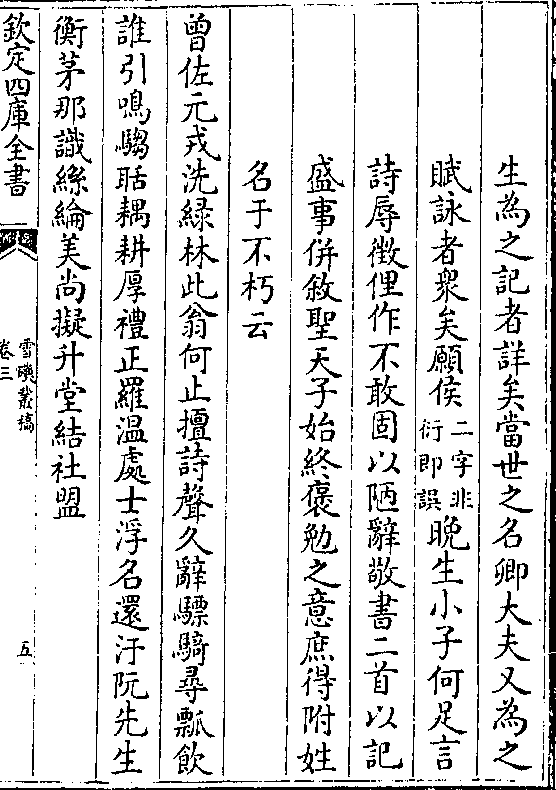 生為之記者詳矣當世之名卿大夫又為之
賦詠者衆矣願侯二字非衍即誤晚生小子何足言
詩辱徵俚作不敢固以陋辭敬書二首以記
盛事併敘聖天子始終褒勉之意庶得附姓
名于不朽云
曾佐元戎洗綠林此翁何止擅詩聲久辭驃騎尋瓢飲
誰引鳴騶聒耦耕厚禮正羅溫處士浮名還汙阮先生
衡茅那識絲綸美尚擬升堂結社盟
欽定四庫全書
雪磯叢稿
卷三
五